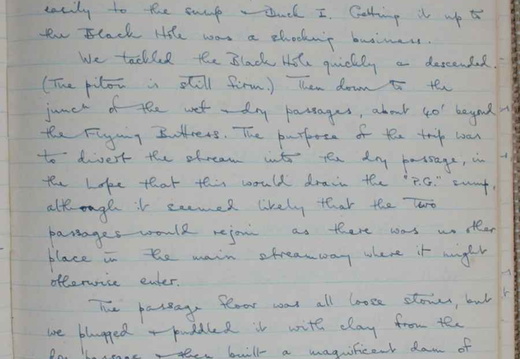 easily to the sump & Duck I. Getting it up to
the Black Hole was a shocking business.
We tackled the Black Hole quickly & descended.
(The piton is still firm.) Then down to the
juncn of the wet & dry passages, about 40' beyond
the Flying Buttress. The purpose of the trip was
to divert the stream into the dry passage, in
the hope that this would drain the "P.G." sump,
although it seemed likely that the two
passages would rejoin as there was no other
place in the main streamway where it might
otherwise enter.
The passage floor was all loose stones, but
we plugged & puddled it with clay from the
dry passage & then built a magnificent dam of